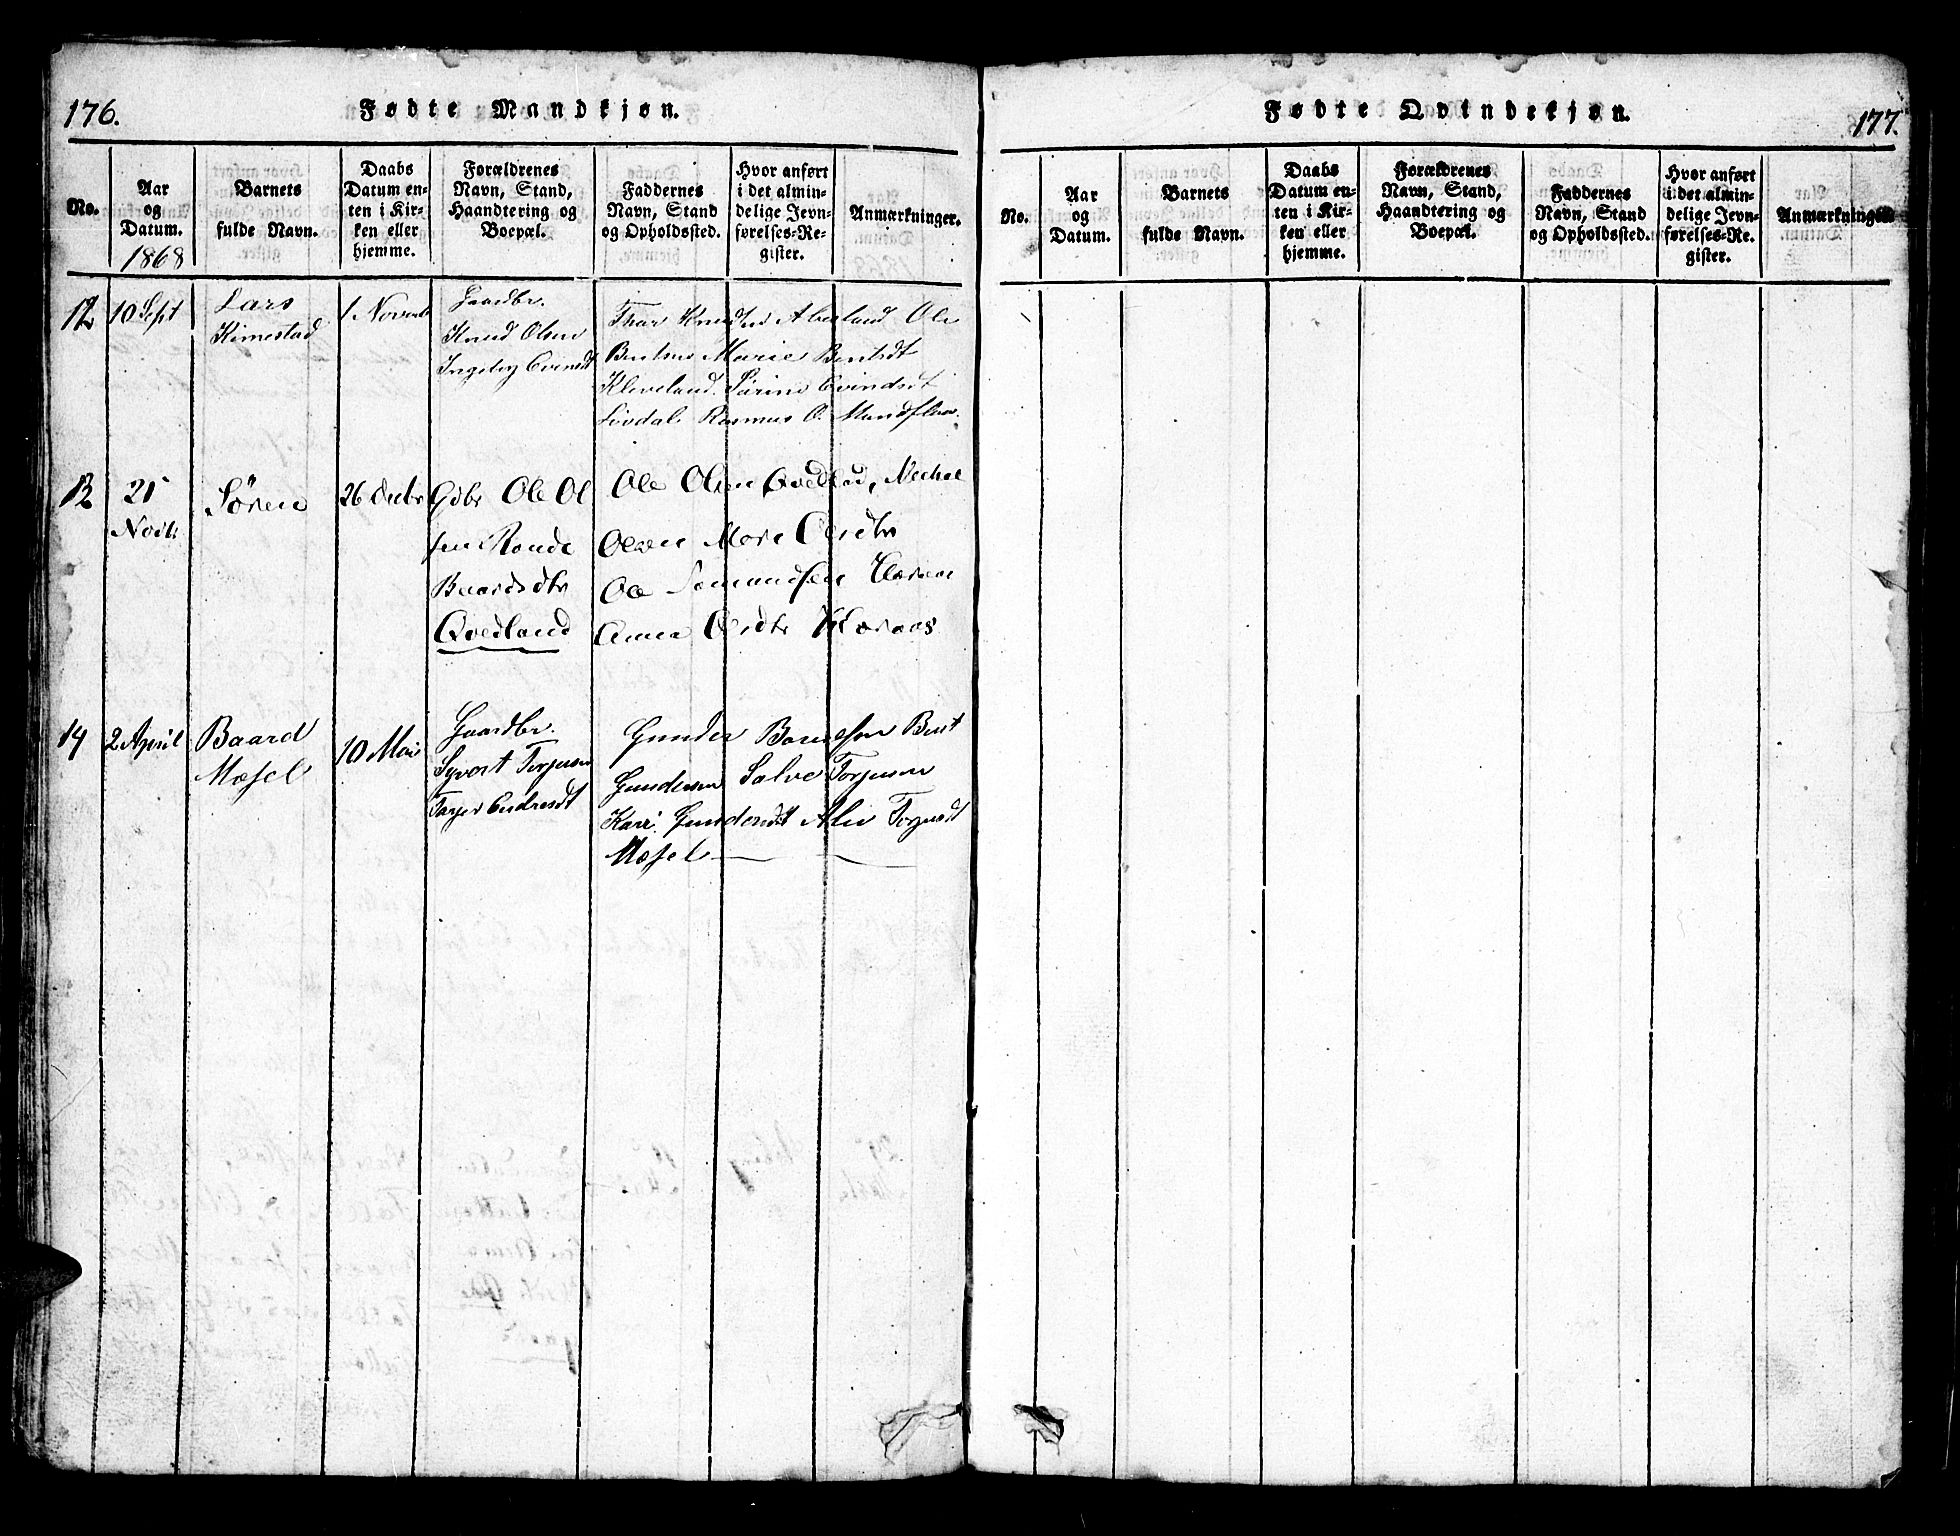 176.
Fødte Mandkjøn.
No.
Aar
og
Datum.
1868
Barnets
fulde Navn.
Daabs
Datum en-
ten i Kir-
ken eller
hjemme.
Forældrenes
Navn, Stand,
Haandtering og
Boepæl.
Faddernes
Navn, Stand
og Opholdssted.
Hvor anført
i det almin-
delige Jevn-
førelses-Re-
gister.
Anmærkninger.
12
10 Sept
Lars
Kimestad
1 Novemb
Gaardbr.
Knud Olsen
Ingeborg
Thor Knudsen Ole
Bentsen Marie Bentsdt
Kleveland. Sørine Evindsdt
Løvdal Rasmus O.
13
21
Novbr
Søren
26 Decbr
Gdbr Ole Ol
sen Ronde
Baardsdtr
Qvedland
Ole Olsen Qvedland,
Olsen
Ole
Anna
14
2 April
Baard
Mæsel
10 Mai
Gaardbr.
Syvert Torjusen
Gunder Bent
Gundersen Salve Torjusen
Kari Gundersdt Torjusdt
Mæsel
Fødte Qvindekjøn.
177.
No.
Aar
og
Datum.
Barnets
fulde Navn.
Daabs
Datum en-
ten i Kir-
ken eller
hjemme.
Forældrenes
Navn, Stand,
Haandtering og
Boepæl.
Faddernes
Navn, Stand
og Opholdssted.
Hvor anført
i det almin-
delige Jevn-
førelses-Re-
gister.
Anmærkninger.